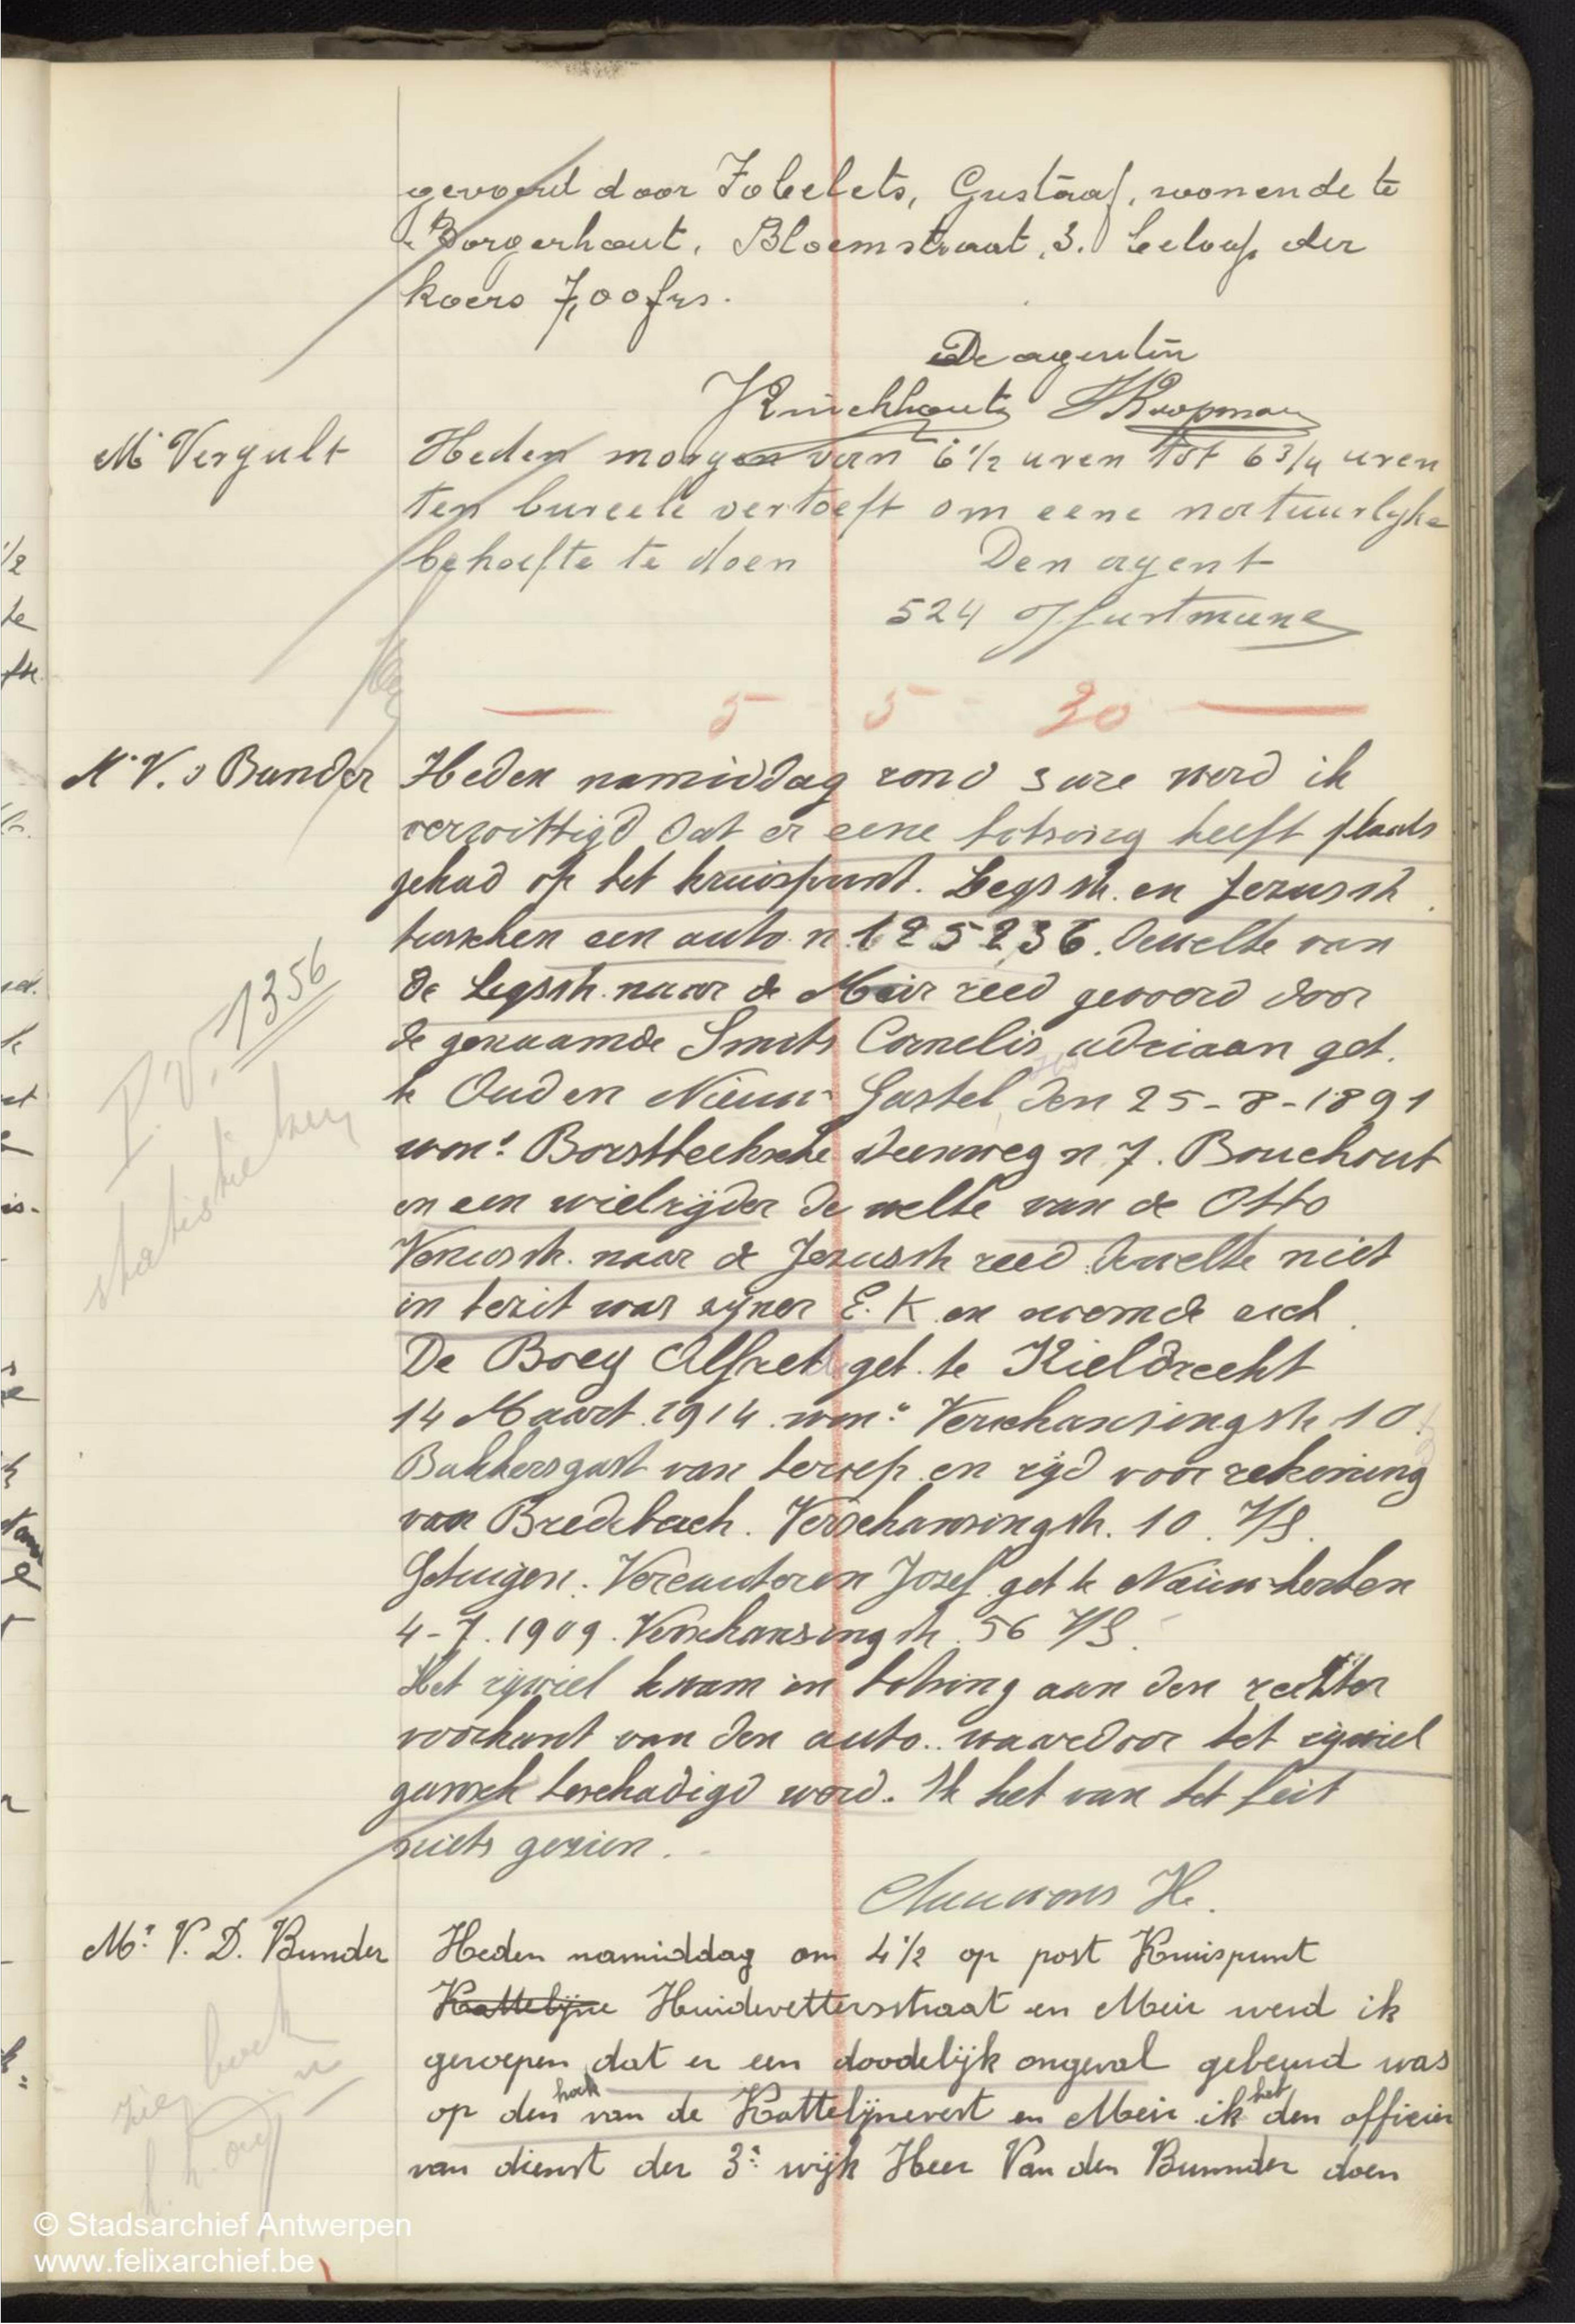 gevoerd door Jobelets, Gustaaf, wonende te
Borgerhout, Bloemstraat, 3. beloop der
koers 7,00 frs.
De agenten
M. Vergult
Heden morgen van 6 1/2 uren tot 6 3/4 uren
ten bureele vertoeft om eene natuurlyke
behoefte te doen
Den agent
524
5 - 5 - 30
Mr V. D Bunder
Heden namiddag rond 3 ure werd ik
verwittigd dat er eene botsing heeft plaats
gehad op het kruispunt. Leysstr. en Jezusstr.
tusschen een auto n 125236. dewelke van
de Leysstr. naar de Meir reed gevoerd door
de genaamde Smits Cornelis adriaan geb.
te Oud en Nieuw Gastel den 25-8-1891
won: Borsbeeksche steenweg n 7. Bouchout
en een wielrijder de welke van de Otto
Veniusstr. naar de Jezusstr reed dewelke niet
in bezit was zijner E.K en noemde zich
De Boey Alfred geb. te Kieldrecht
14 Maart 1914 won: Verschansingstr 10.
Bakkersgast van beroep en rijd voor rekening
van Bredebach. Verschansingstr. 10. V/S.
Getuigen. Vercauteren Jozef geb te Nieuwkerken
4-7.1909. Verschansingstr. 56 V/S.
Het rijwiel kwam in botsing aan den rechter
voorkant van den auto.. waardoor het rijwiel
gansch beschadigd werd. Ik heb van het feit
niets gezien.
P.V. 1356
statistieken
Mr. V. D. Bunder
Heden namiddag om 4 1/2 op post Kruispunt
Kattelijne Huidevettersstraat en Meir werd ik
geroepen dat er een doodelijk ongeval gebeurd was
op den hoek van de Kattelijnevest en Meir ik heb den officier
van dienst der 3e wijk Heer Van den Bunnder doen
zie boek
© Stadsarchief Antwerpen
www.felixarchief.be